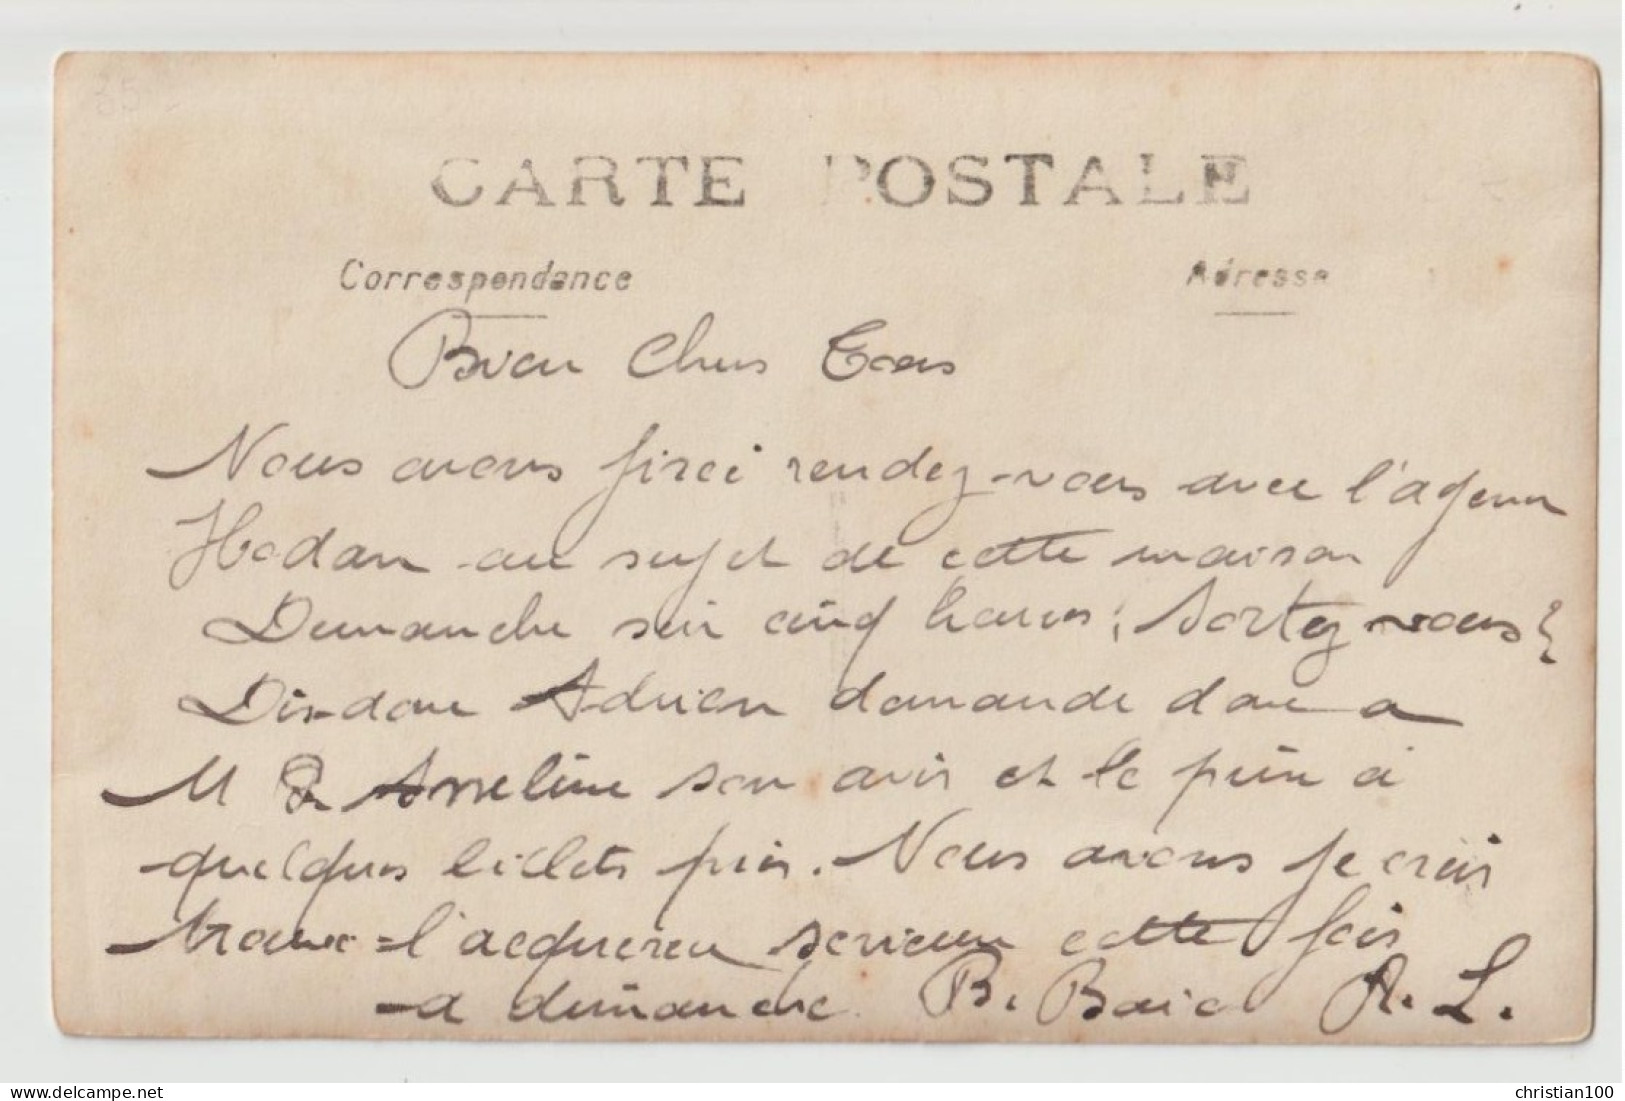 CARTE POSTALE
Correspondance
Adresse
Bien Chers Tous
Nous avons fixé rendez-vous avec l'agence
Hodan au sujet de cette maison
Dimanche soir cinq heures; Sortez-vous?
Dis-donc Adrien demande donc a
M Ameline son avis et le prix à
quelques billets près. Nous avons je crois
trouvé l'acquéreur serieux cette fois
a dimanche. B. Baie A. L.
delcampe.net
christian100